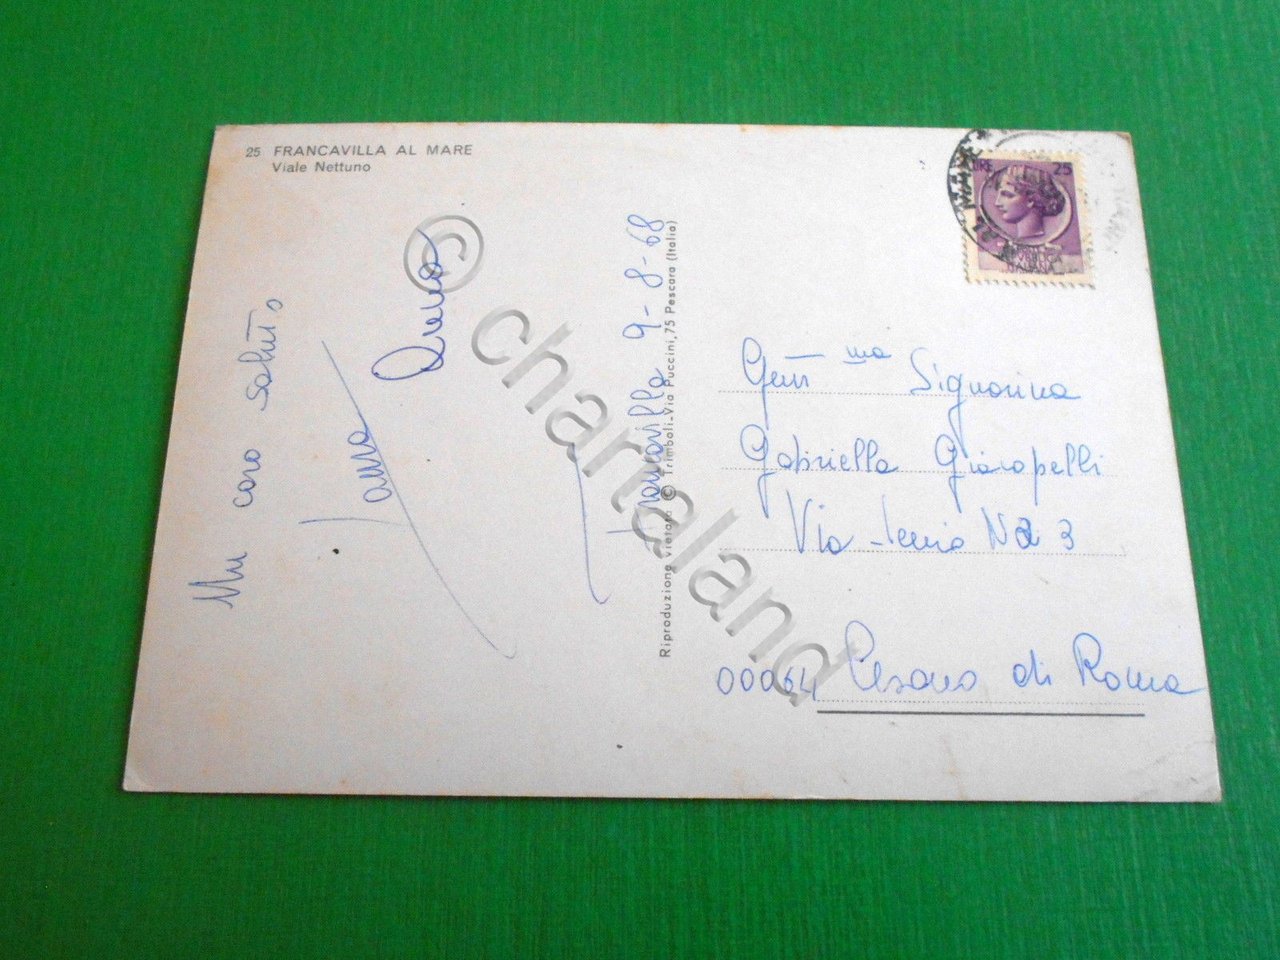 25 FRANCAVILLA AL MARE
Viale Nettuno
Un caro saluto
Anna
Francavilla 9-8-68
Riproduzione vietata © Trimboli-Via Puccini, 75 Pescara (Italia)
LIRE 25
REPUBBLICA
ITALIANA
Gent ma Signorina
Gabriella Giacopelli
Via N 3
00064 Cesano di Roma
© chartaland